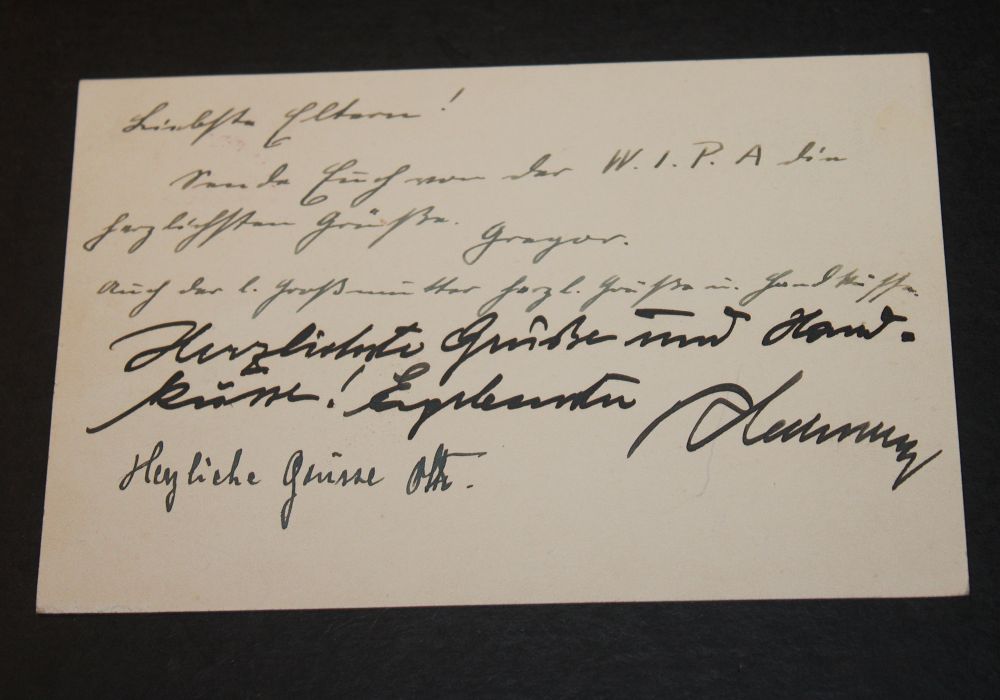 Liebste Eltern!
Sende Euch von der W. I. P. A die
herzlichsten Grüße. Gregor.
Auch der l. Großmutter herzl. Grüße u. Handküsse.
Herzlichste Grüße und Hand-
küsse! Ergebenster
Herzliche Grüsse Otto.